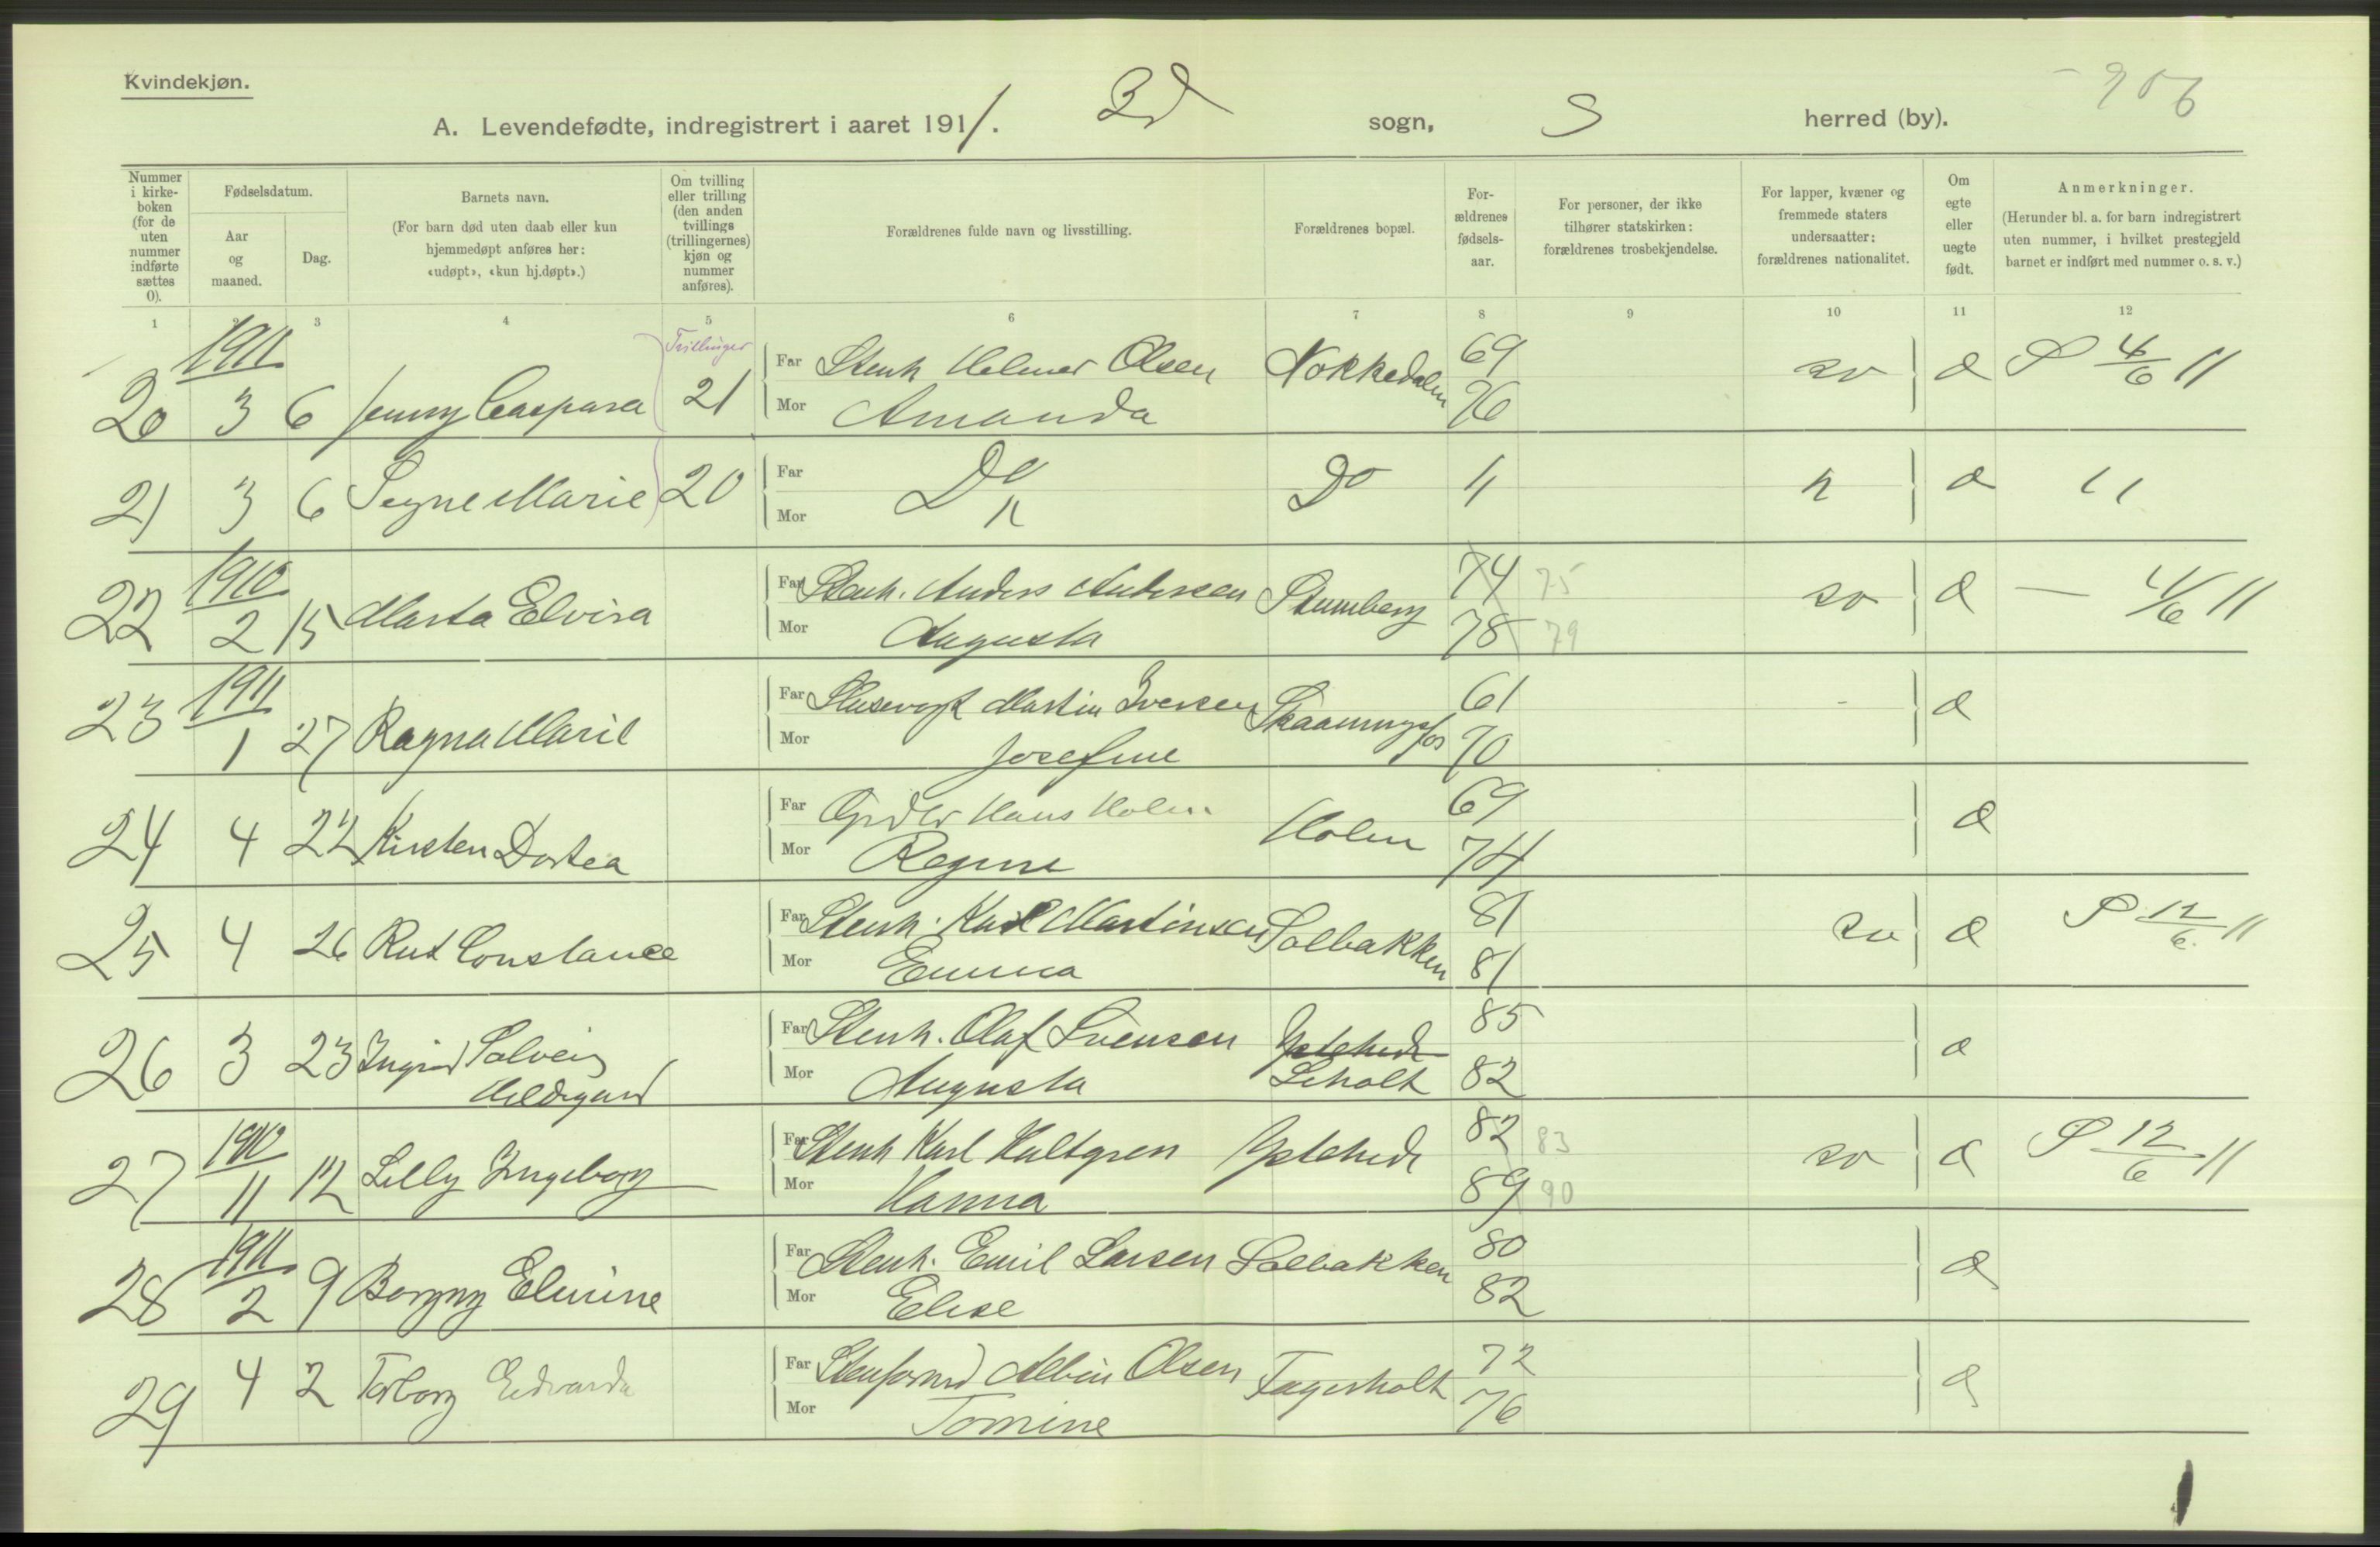 Kvindekjøn.
A. Levendefødte, indregistrert i aaret 1911. Bd sogn, S herred (by).
Nummer i kirkeboken (for de uten nummer indførte sættes 0).
Fødselsdatum.
Aar og maaned.
Dag.
Barnets navn.
(For barn død uten daab eller kun hjemmedøpt anføres her: «udøpt», «kun hj.døpt».)
Om tvilling eller trilling (den anden tvillings (trillingernes) kjøn og nummer anføres).
Forældrenes fulde navn og livsstilling.
Forældrenes bopæl.
Forældrenes fødselsaar.
For personer, der ikke tilhører statskirken: forældrenes trosbekjendelse.
For lapper, kvæner og fremmede staters undersaatter: forældrenes nationalitet.
Om egte eller uegte født.
Anmerkninger.
(Herunder bl. a. for barn indregistrert uten nummer, i hvilket prestegjeld barnet er indført med nummer o. s. v.)
1 2 3 4 5 6 7 8 9 10 11 12
1911 Tvillinger Far Stenh Helmer Olsen Nokkedalen 69 sv
20 3 6 Jenny Caspara 21 Mor Amanda 76
21 3 6 Segne Marie 20 Far Do Do
Mor
1910 Far Stenh. Anders Andersen 74 75 sv
22 2 15 Marta Elvira Mor Augusta 78 79
1911 Far Slusevogt Martin Iversen Skaaningsfos 61
23 1 27 Ragna Marie Mor Josefine 70
Far Hans Holen Holen 69
24 4 22 Kirsten Dortea Mor Regine 74
Far Stenh. Karl Martinsen Solbakken 81 sv
25 4 26 Rut Constance Mor Emma 81
Far Stenh. Olaf Svensen Ystehede 85
26 3 23 Ingrid Solveig Hildegard Mor Augusta Liholt 82
1910 Far Stenh Karl Hultgren Ystehede 82 83 sv
27 11 12 Lilly Ingeborg Mor Hanna 89 90
1911 Far Stenh. Emil Larsen Solbakken 80
28 2 9 Borgny Elmine Mor Elise 82
Far Stenformd Albin Olsen Fagerholt 72
29 4 2 Torborg Edvarda Mor Tomine 76